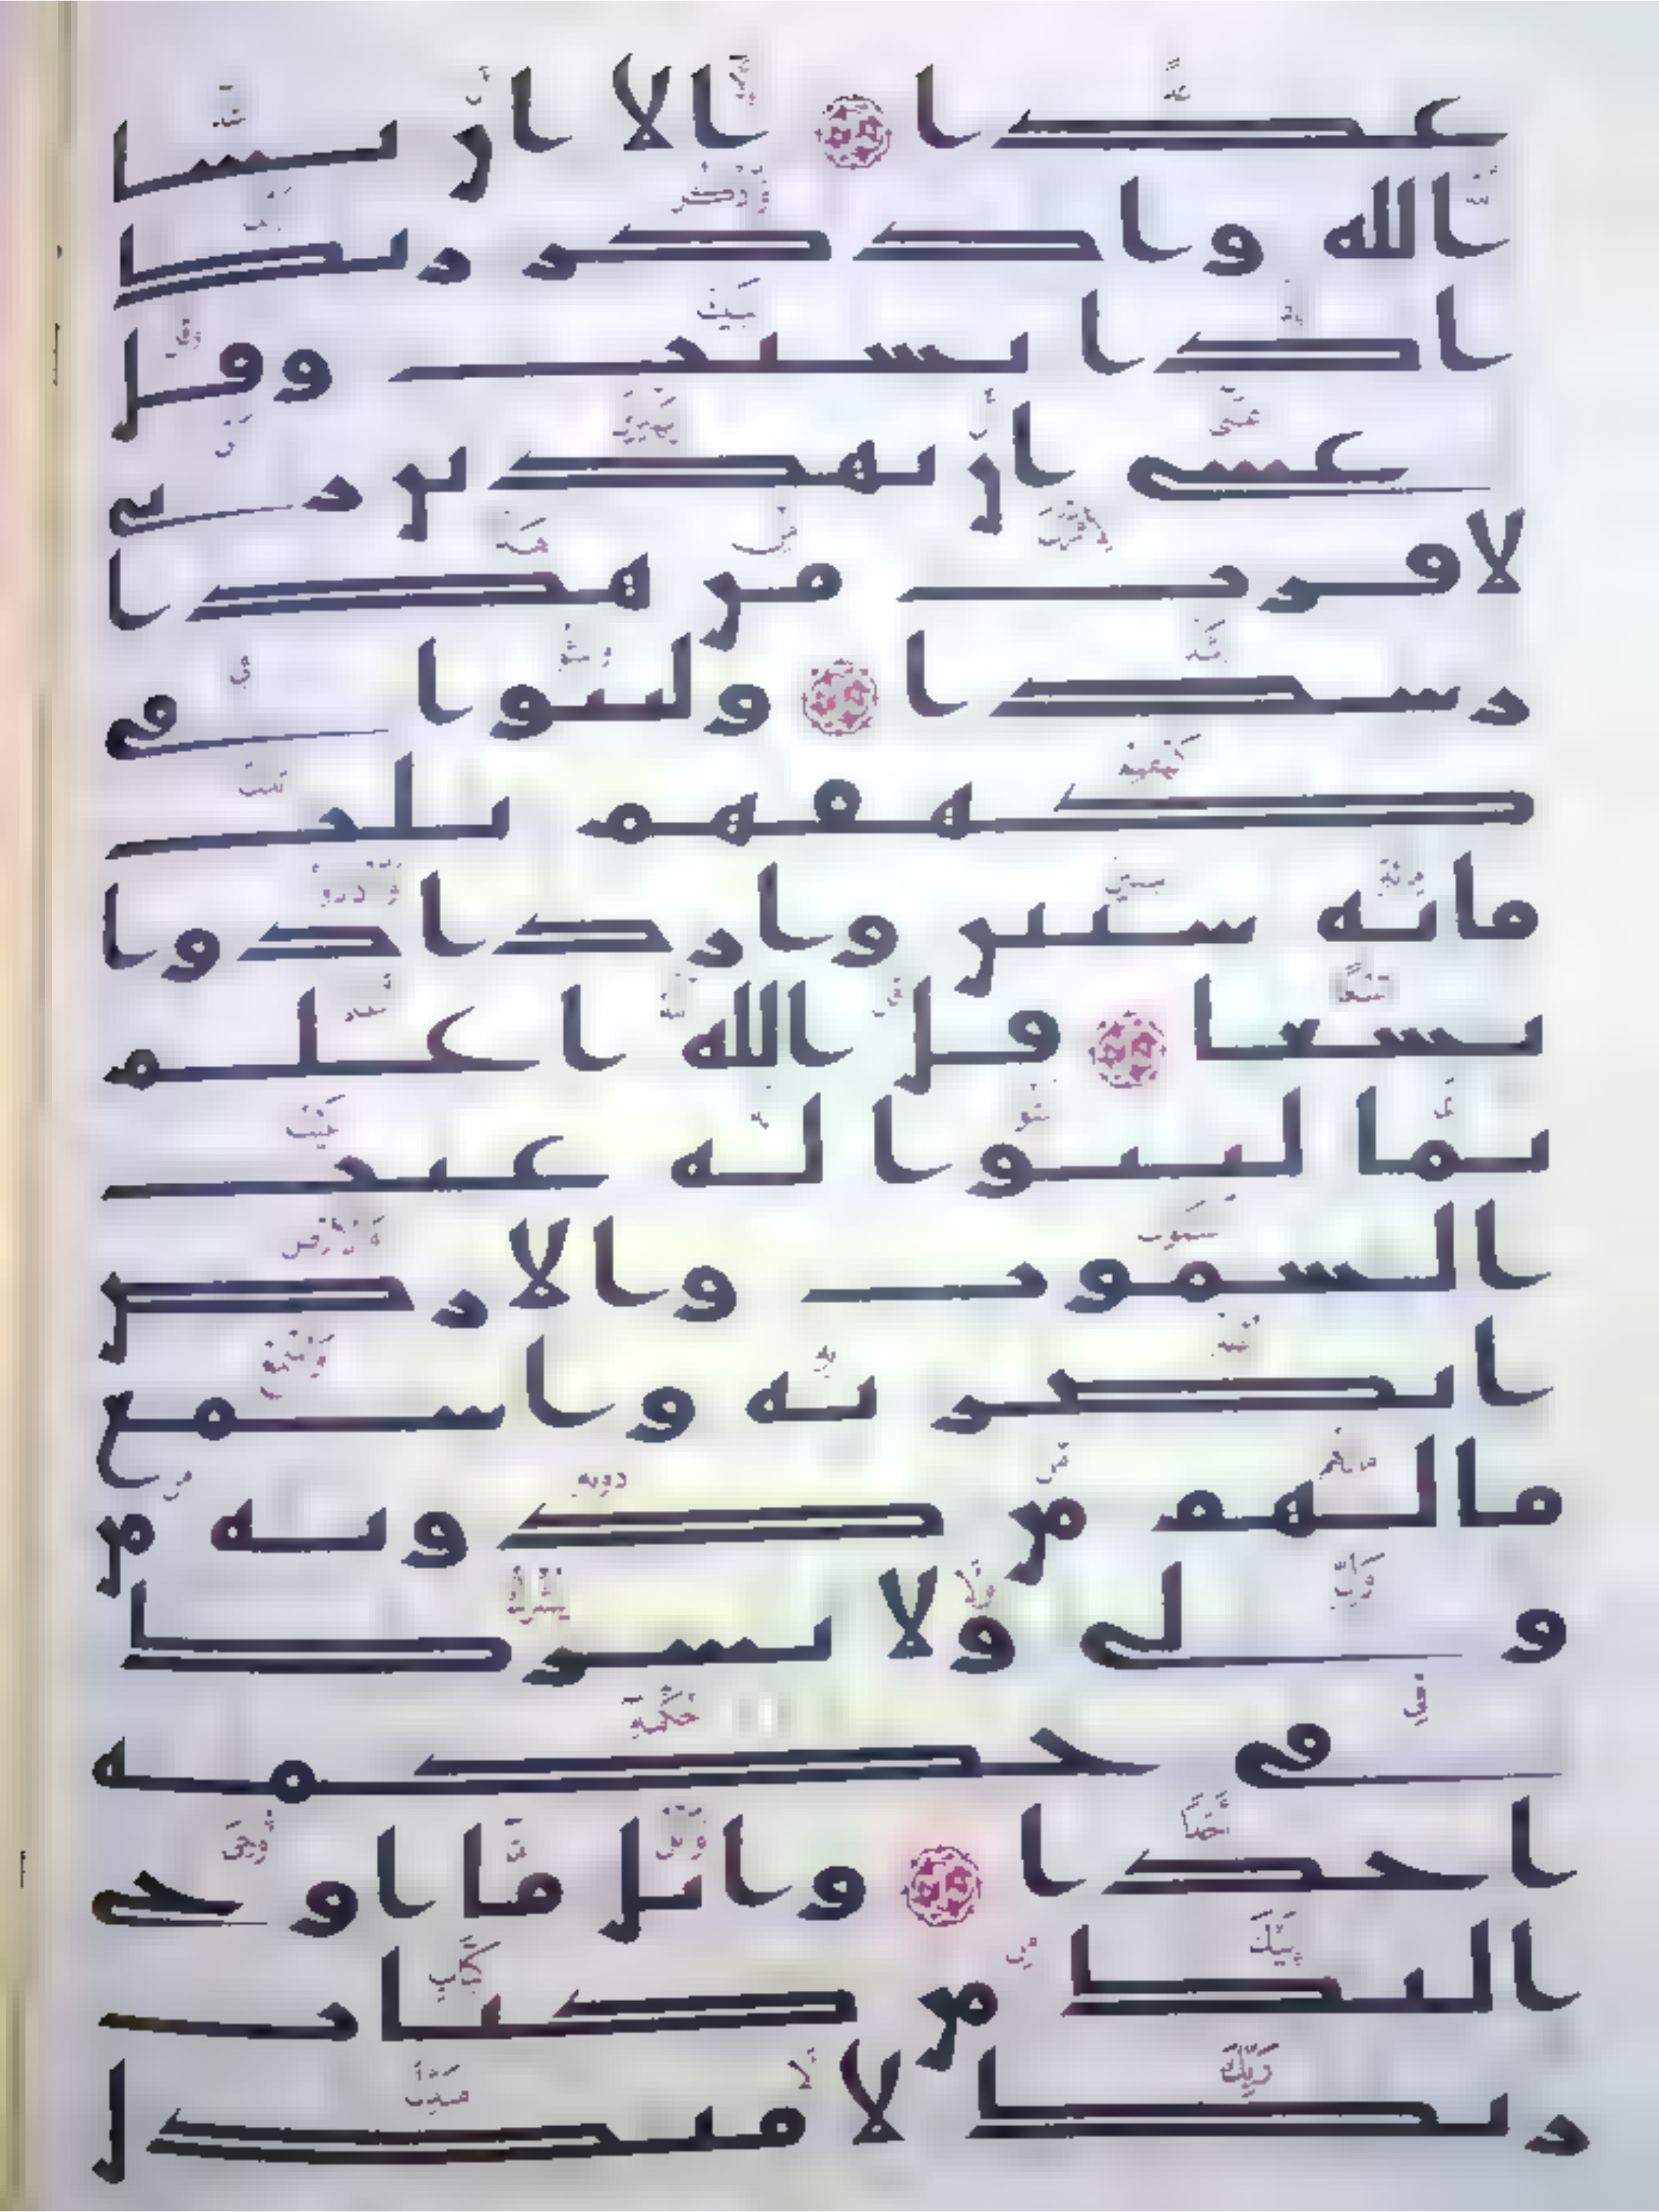 غدا الا ان يشا
الله واذكر ربك
اذا نسيت وقل
عسى ان يهدين ربي
لاقرب من هذا
رشدا ولبثوا في
كهفهم ثلث
مائة سنين وازدادوا
تسعا قل الله اعلم
بما لبثوا له غيب
السموت والارض
ابصر به واسمع
ما لهم من دونه من
ولي ولا يشرك
في حكمه
احدا واتل ما اوحي
اليك من كتاب
ربك لا مبدل